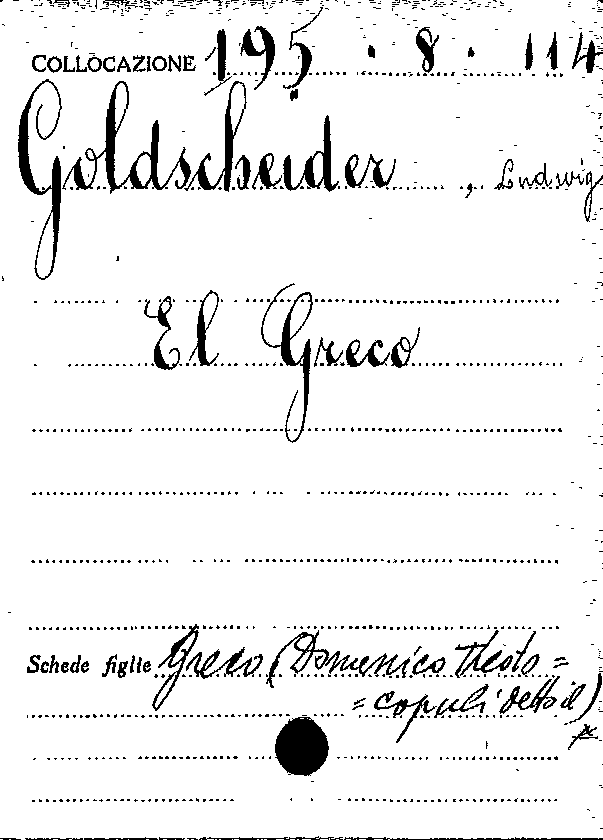 COLLOCAZIONE 195 · 8 · 114
Goldscheider, Ludwig
El Greco
Schede figlie Greco (Domenico Theoto=
=copuli detto il)
*